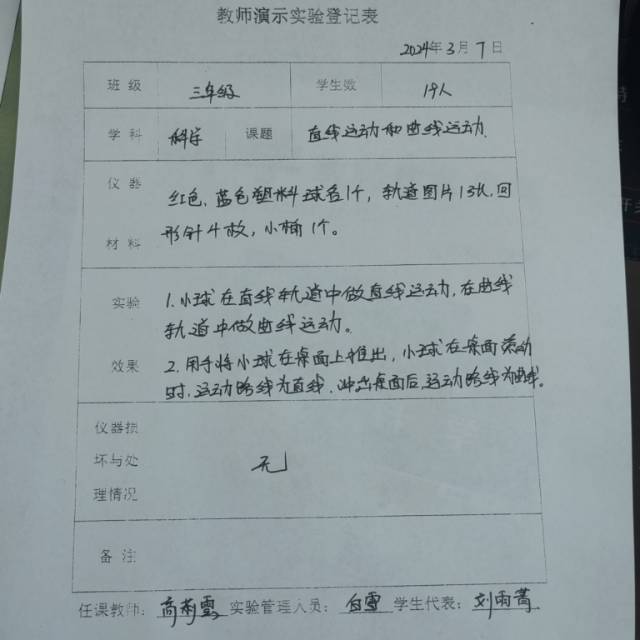 教师演示实验登记表
2024年3月7日
班级 三年级 学生数 19人
学科 科学 课题 直线运动和曲线运动
仪器 红色、蓝色塑料球各1个，轨道图片1张.回
材料 形针4枚，小桶1个。
实验 1.小球在直线轨道中做直线运动，在曲线
轨道中做曲线运动。
效果 2.用手将小球在桌面上推出，小球在桌面滚动
时，运动路线为直线，冲出桌面后，运动路线为曲线。
仪器损
坏与处 无
理情况
备注
任课教师： 实验管理人员：白雪 学生代表：刘雨菁